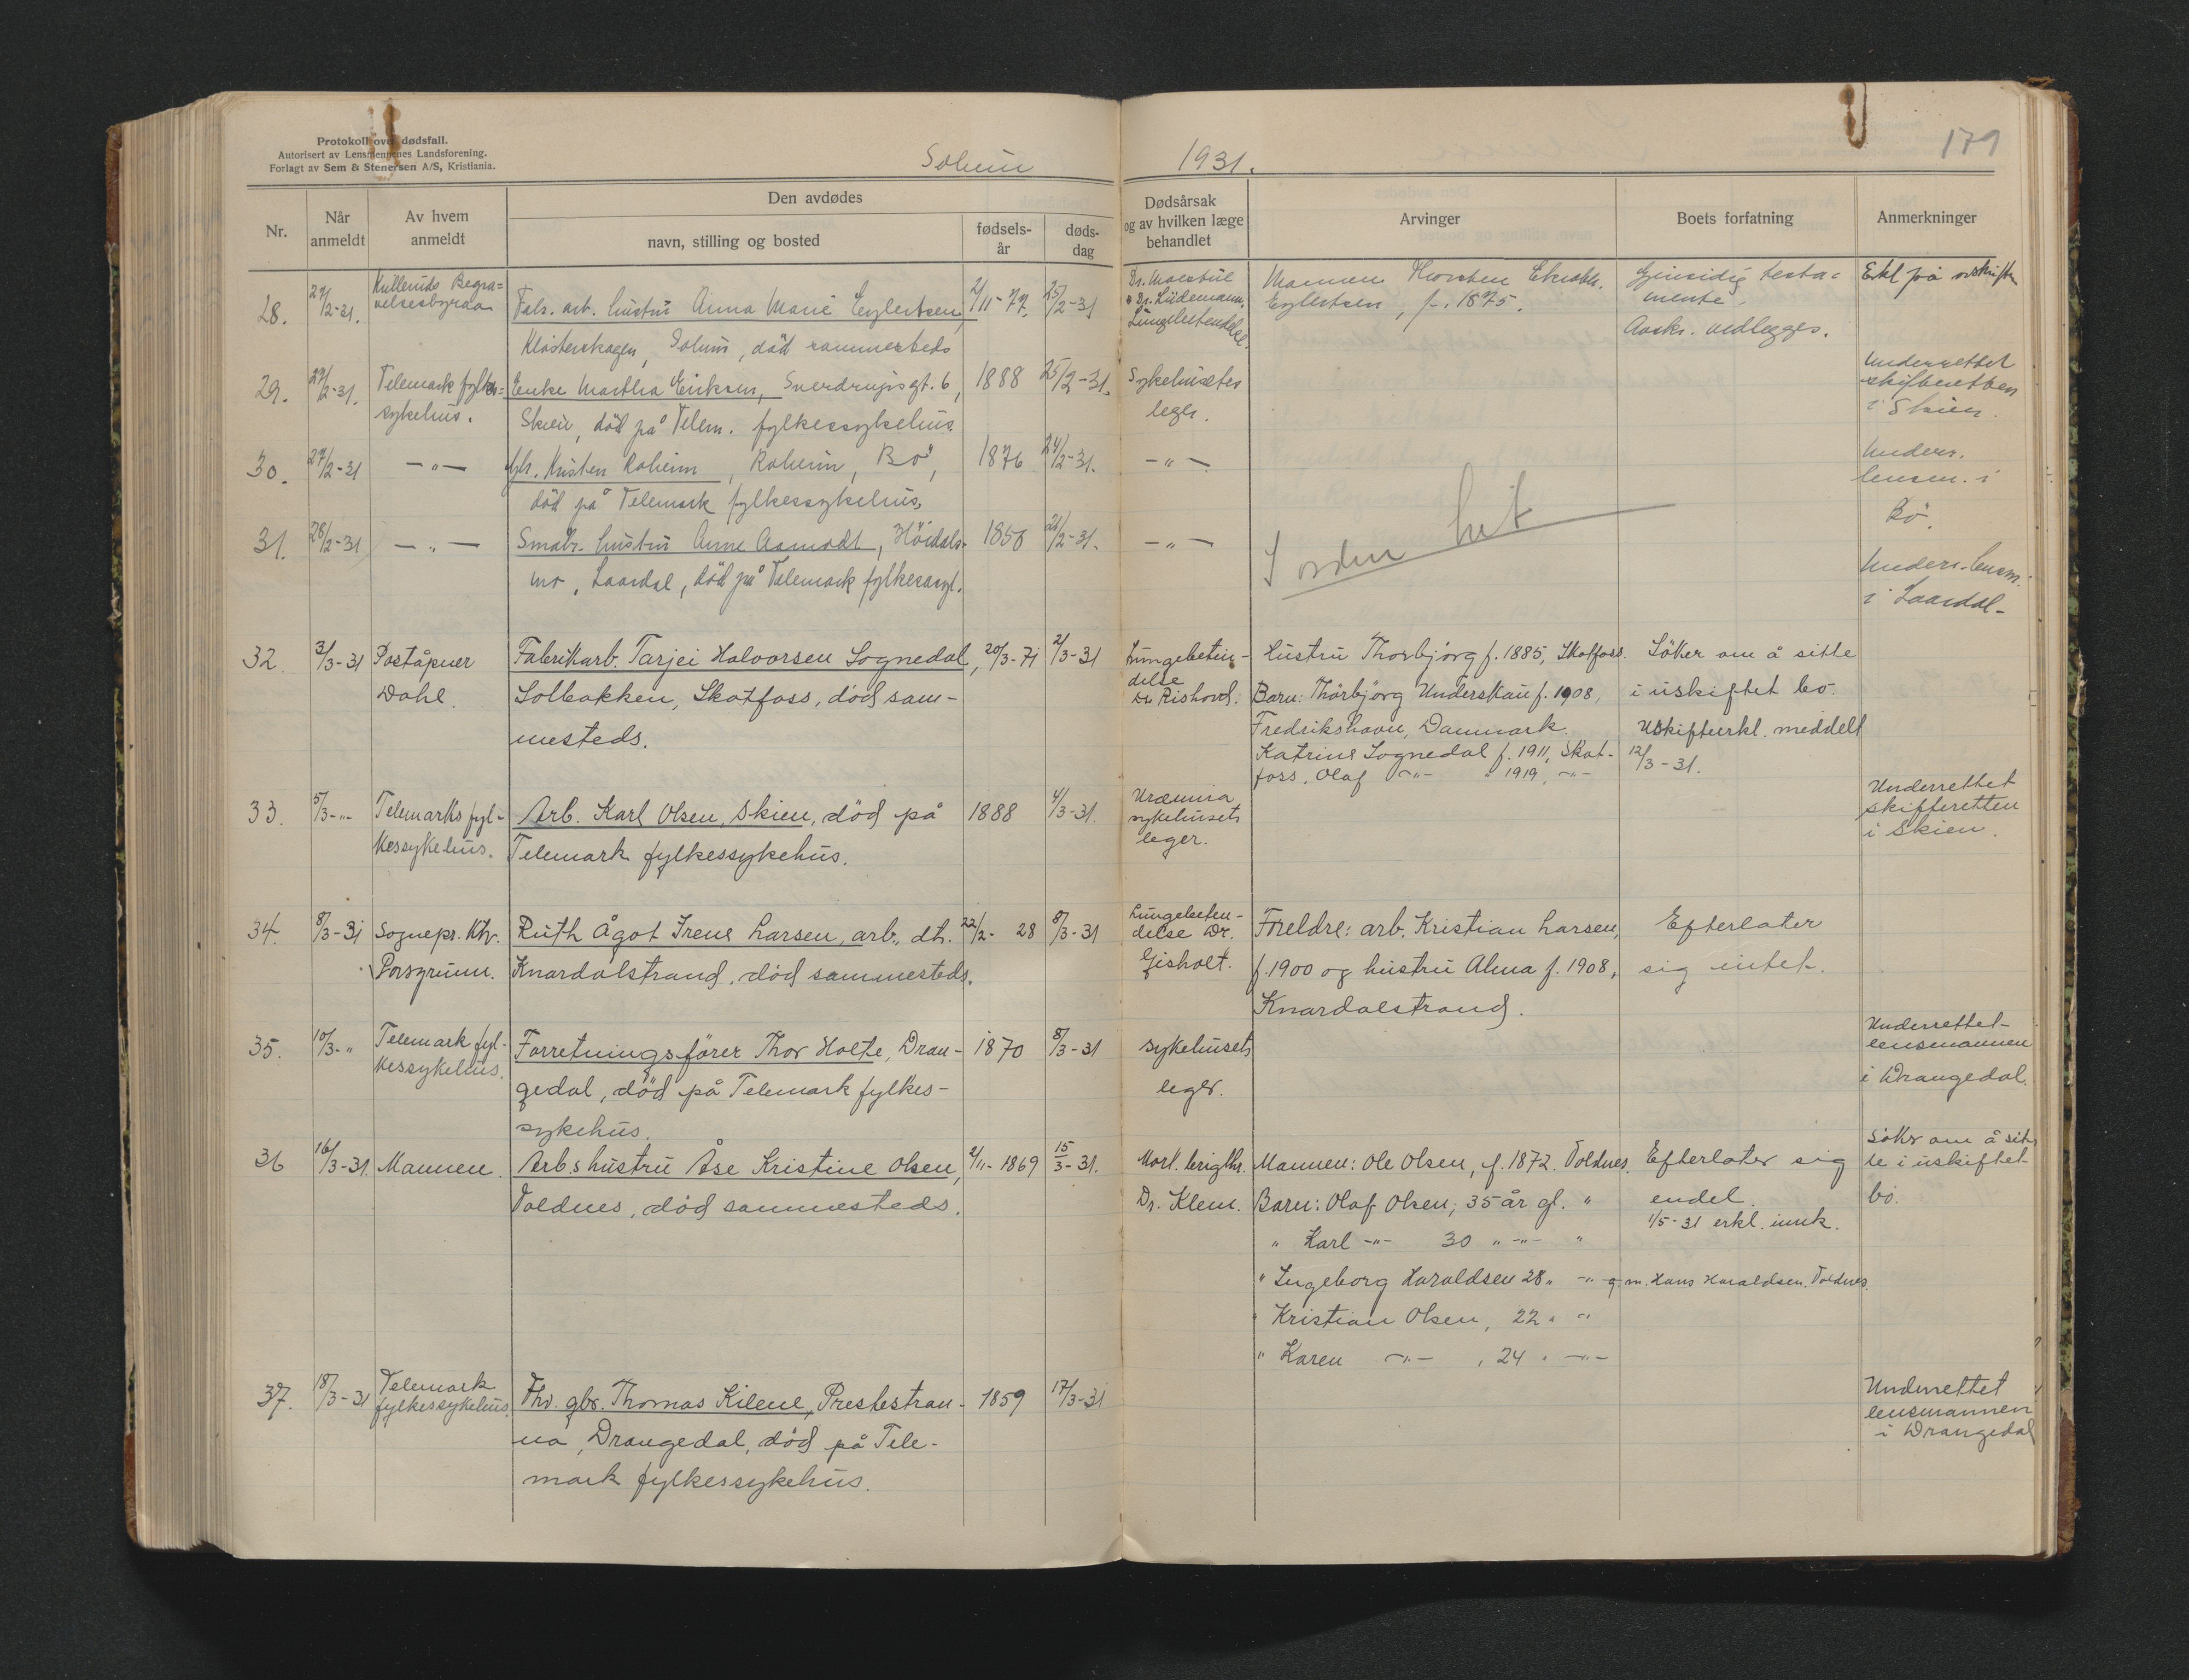 Protokoll over dødsfall.
Autorisert av Lensmennenes Landsforening.
Forlagt av Sem & Stenersen A/S, Kristiania.
Solum 1931.
179
Nr.
Når anmeldt
Av hvem anmeldt
Den avdødes
navn, stilling og bosted
fødsels-år
døds-dag
Dødsårsak og av hvilken læge behandlet
Arvinger
Boets forfatning
Anmerkninger
28. 27/2-31. Begra=
velsesbyraa
Fabr. arb. hustru Anna Marie Eylertsen 2/11-77. 25/2-31
Klosterskogen, Solum, död sammesteds
Dr.
& Dr. Lüdemann.
Lungebetendelse.
Mannen Thorsten
Eylertsen, f. 1875.
Gjensidig testa=
mente.
Avskr. vedlegges.
Erkl på avskriften
29. 27/2-31. Telemark fylkes=
sykehus.
Enke Martha Eriksen, Sverdrupsgt. 6, 1888 25/2-31.
Skien, död på Telem. fylkessykehus.
Sykehusets
leger.
Underrettet
skifteretten
i Skien.
30. 27/2-31 -"- gbr. Kristen Roheim, Roheim, Bö, 1876 24/2-31. -"-
död på Telemark fylkessykehus.
Underr.
lensm. i
Bö.
31. 28/2-31 -"- Smabr. hustru Anne Aamodt, Höidals- 1858 21/2-31. -"-
mo, Laardal, död på Telemark fylkessyk.
I orden hit
Underr. lensm.
i Laardal-
32. 3/3-31 Poståpner
Dahl.
Fabrikarb. Tarjei Halvorsen Sognedal, 20/3-71 2/3-31
Solbakken, Skotfoss, död sam-
mesteds.
Lungebeten-
delse
Dr. Rishovd.
Hustru Thorbjörg f. 1885, Skotfoss.
Barn: Thorbjörg Underskau f. 1908,
Fredrikshavn, Danmark.
Katrine Sognedal f. 1911, Skot-
foss. Olaf -"- " 1919, -"-
Söker om å sitte
i uskiftet bo.
Uskifteerkl. meddelt
12/3-31.
33. 5/3-"- Telemarks fyl-
kessykehus.
Arb. Karl Olsen, Skien, död på 1888 4/3-31.
Telemark fylkessykehus.
Uræmia
sykehusets
leger.
Underrettet
skifteretten
i Skien.
34. 8/3-31 Sognepr. Ktr.
Porsgrunn.
Ruth Ågot Irene Larsen, arb., dt. 22/2- 28 8/3-31
Knardalstrand, död sammesteds.
Lungebeten-
delse Dr.
Gisholt.
Foreldre: arb. Kristian Larsen,
f. 1900 og hustru Alma f. 1908,
Knardalstrand.
Efterlater
sig intet.
35. 10/3-" Telemark fyl-
kessykehus.
Forretningsförer Thor Holte, Dran- 1870 8/3-31
gedal, död på Telemark fylkes-
sykehus.
sykehusets
leger.
Underrettet
lensmannen
i Drangedal.
36 16/3-31. Mannen. Arb.s hustru Åse Kristine Olsen, 2/11-1869 15/3-31.
Voldnes, död sammesteds.
Dr. Klem.
Mannen: Ole Olsen, f. 1872. Voldnes.
Barn: Olaf Olsen, 35 år gl. "
" Karl -"- 30 " -"- "
" Ingeborg Haraldsen 28 " -"- g. m. Hans Haraldsen. Voldnes.
" Kristian Olsen, 22 " "
" Karen -"-, 24 " -"-
Efterlater sig
endel.
1/5-31 erkl. innk.
Söker om å sit-
te i uskiftet
bo.
37. 18/3-31 Telemark
fylkessykehus.
Fhv. gbr. Thomas Kilene, Prestestran- 1859 17/3-31
na, Drangedal, död på Tele-
mark fylkessykehus.
Underrettet
lensmannen
i Drangedal